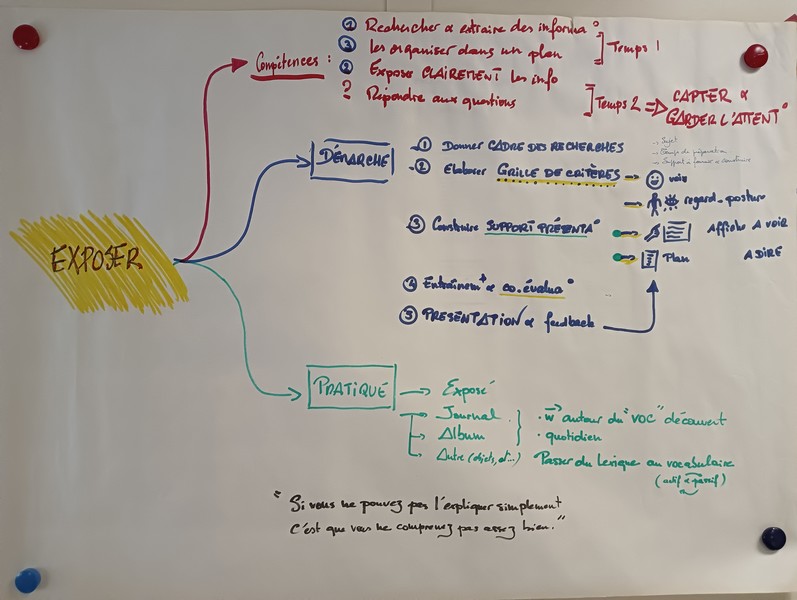 ① Rechercher & extraire des informa°
Compétences :
③ les organiser dans un plan
Temps 1
② Exposer CLAIREMENT les info
? Répondre aux questions
Temps 2 => CAPTER &
GARDER L'ATTENT°
DÉMARCHE
① Donner CADRE DES RECHERCHES
Sujet
Temps de préparation
② Elaborer GRILLE DE CRITÈRES
voix
regard - posture
③ Construire SUPPORT PRÉSENTA°
Affiche A VOIR
Plan A DIRE
EXPOSER
④ Entraînem^t & co.évalua°
⑤ PRESENTATION & feedback
PRATIQUE
Exposé
Journal
Album
Autre (objets, et...)
. w autour du "VOC" découvert
. quotidien
Passer du lexique au vocabulaire
(actif & passif)
"Si vous ne pouvez pas l'expliquer simplement
C'est que vous ne comprenez pas assez bien."